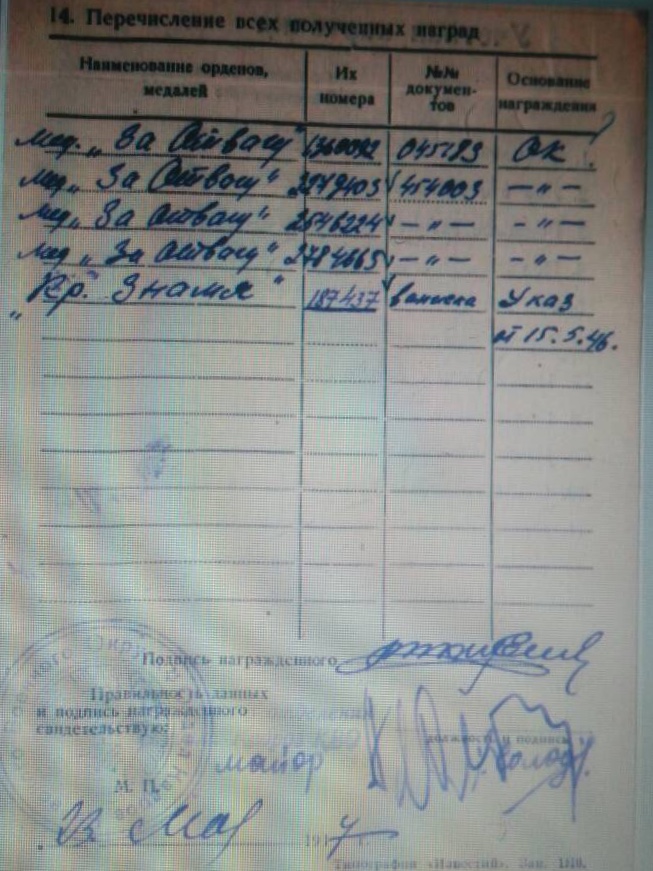 14. Перечисление всех полученных наград
Наименование орденов, медалей
Их номера
№№ докумен-тов
Основание награждения
мед. „За Отвагу" 1360092 045183 ОК
мед „За Отвагу" 2249403 454003 — „ —
мед „За Отвагу" 2546224 — „ — — „ —
мед „За Отвагу" 2784665 — „ — — „ —
„Кр. Знамя" 187437 выписка Указ
от 15.5.46.
Подпись награжденного
Правильность данных
и подпись награжденного
свидетельствую:
должность и подпись
майор
М. П.
23 Мая 1947 г.
Типография «Известий». Зак. 1310.